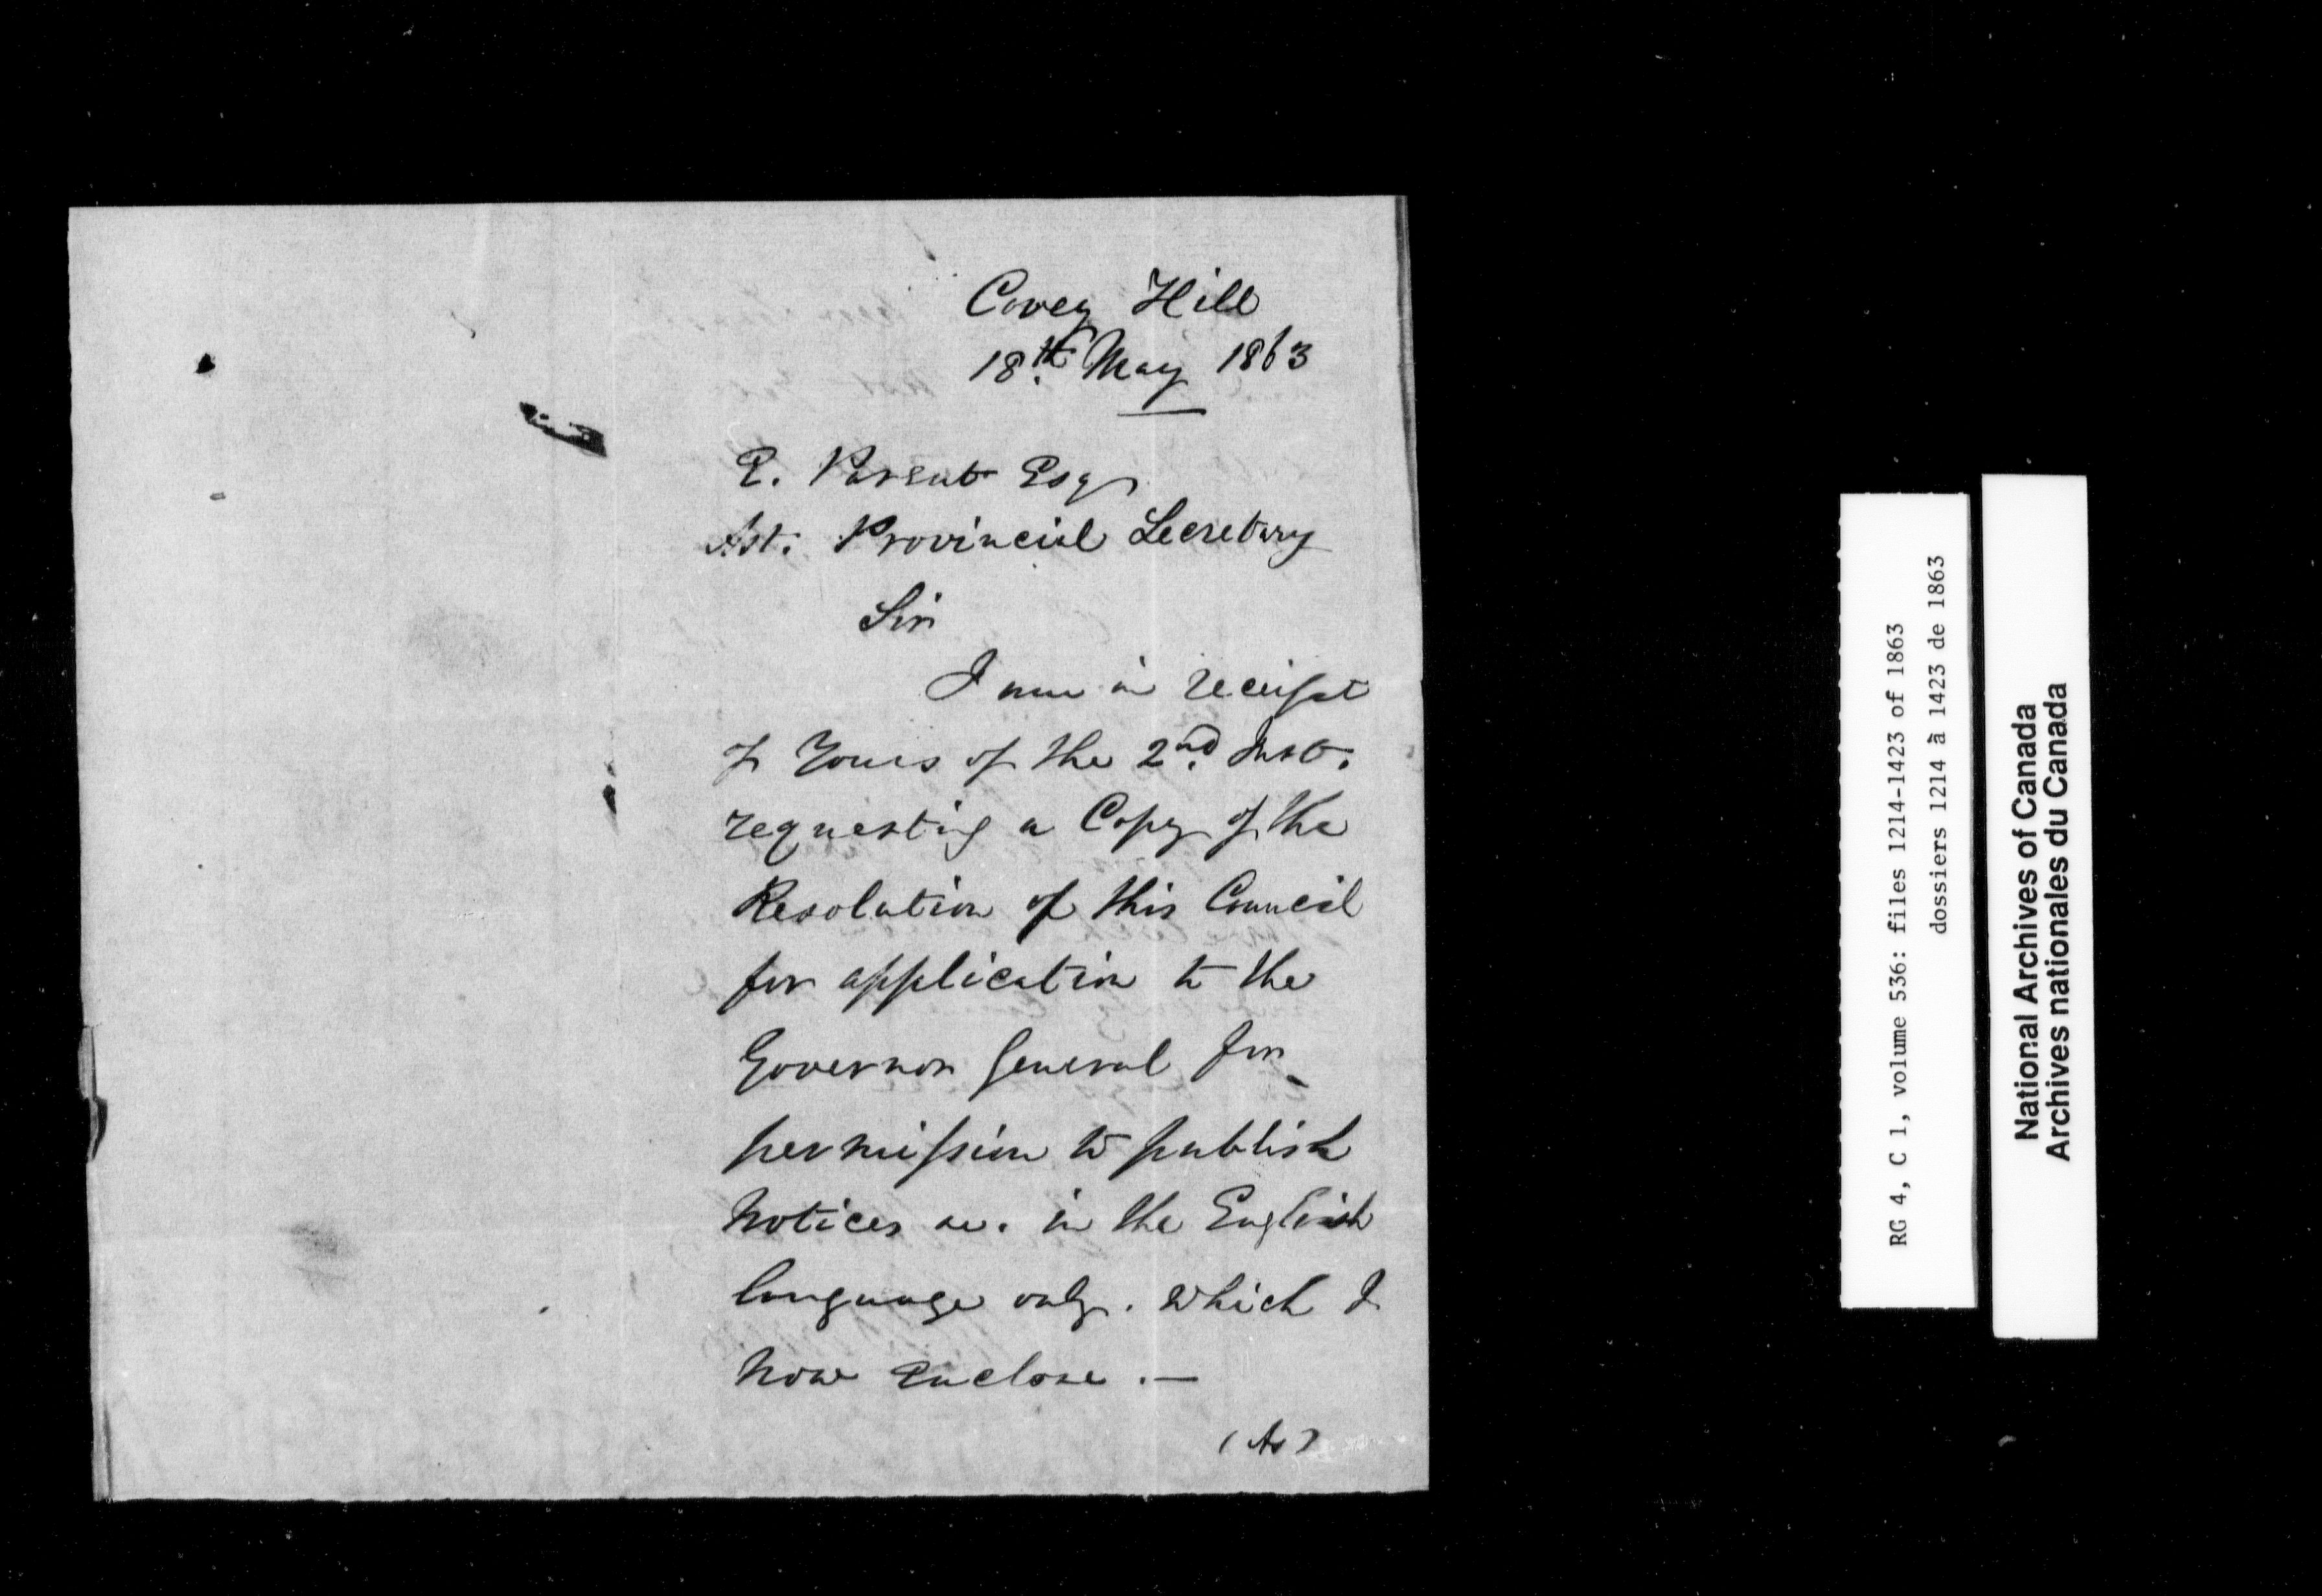 Covey Hill
18th May 1863
E. Parent Esqr
Ast. Provincial Secretary
Sir
I am in receipt
of Yours of the 2nd Inst.
requesting a Copy of the
Resolution of this Council
for application to the
Governor General for
permission to publish
Notices &c. in the English
language only. which I
now Enclose.—
(As)
RG 4, C 1, volume 536: files 1214-1423 of 1863
dossiers 1214 à 1423 de 1863
National Archives of Canada
Archives nationales du Canada